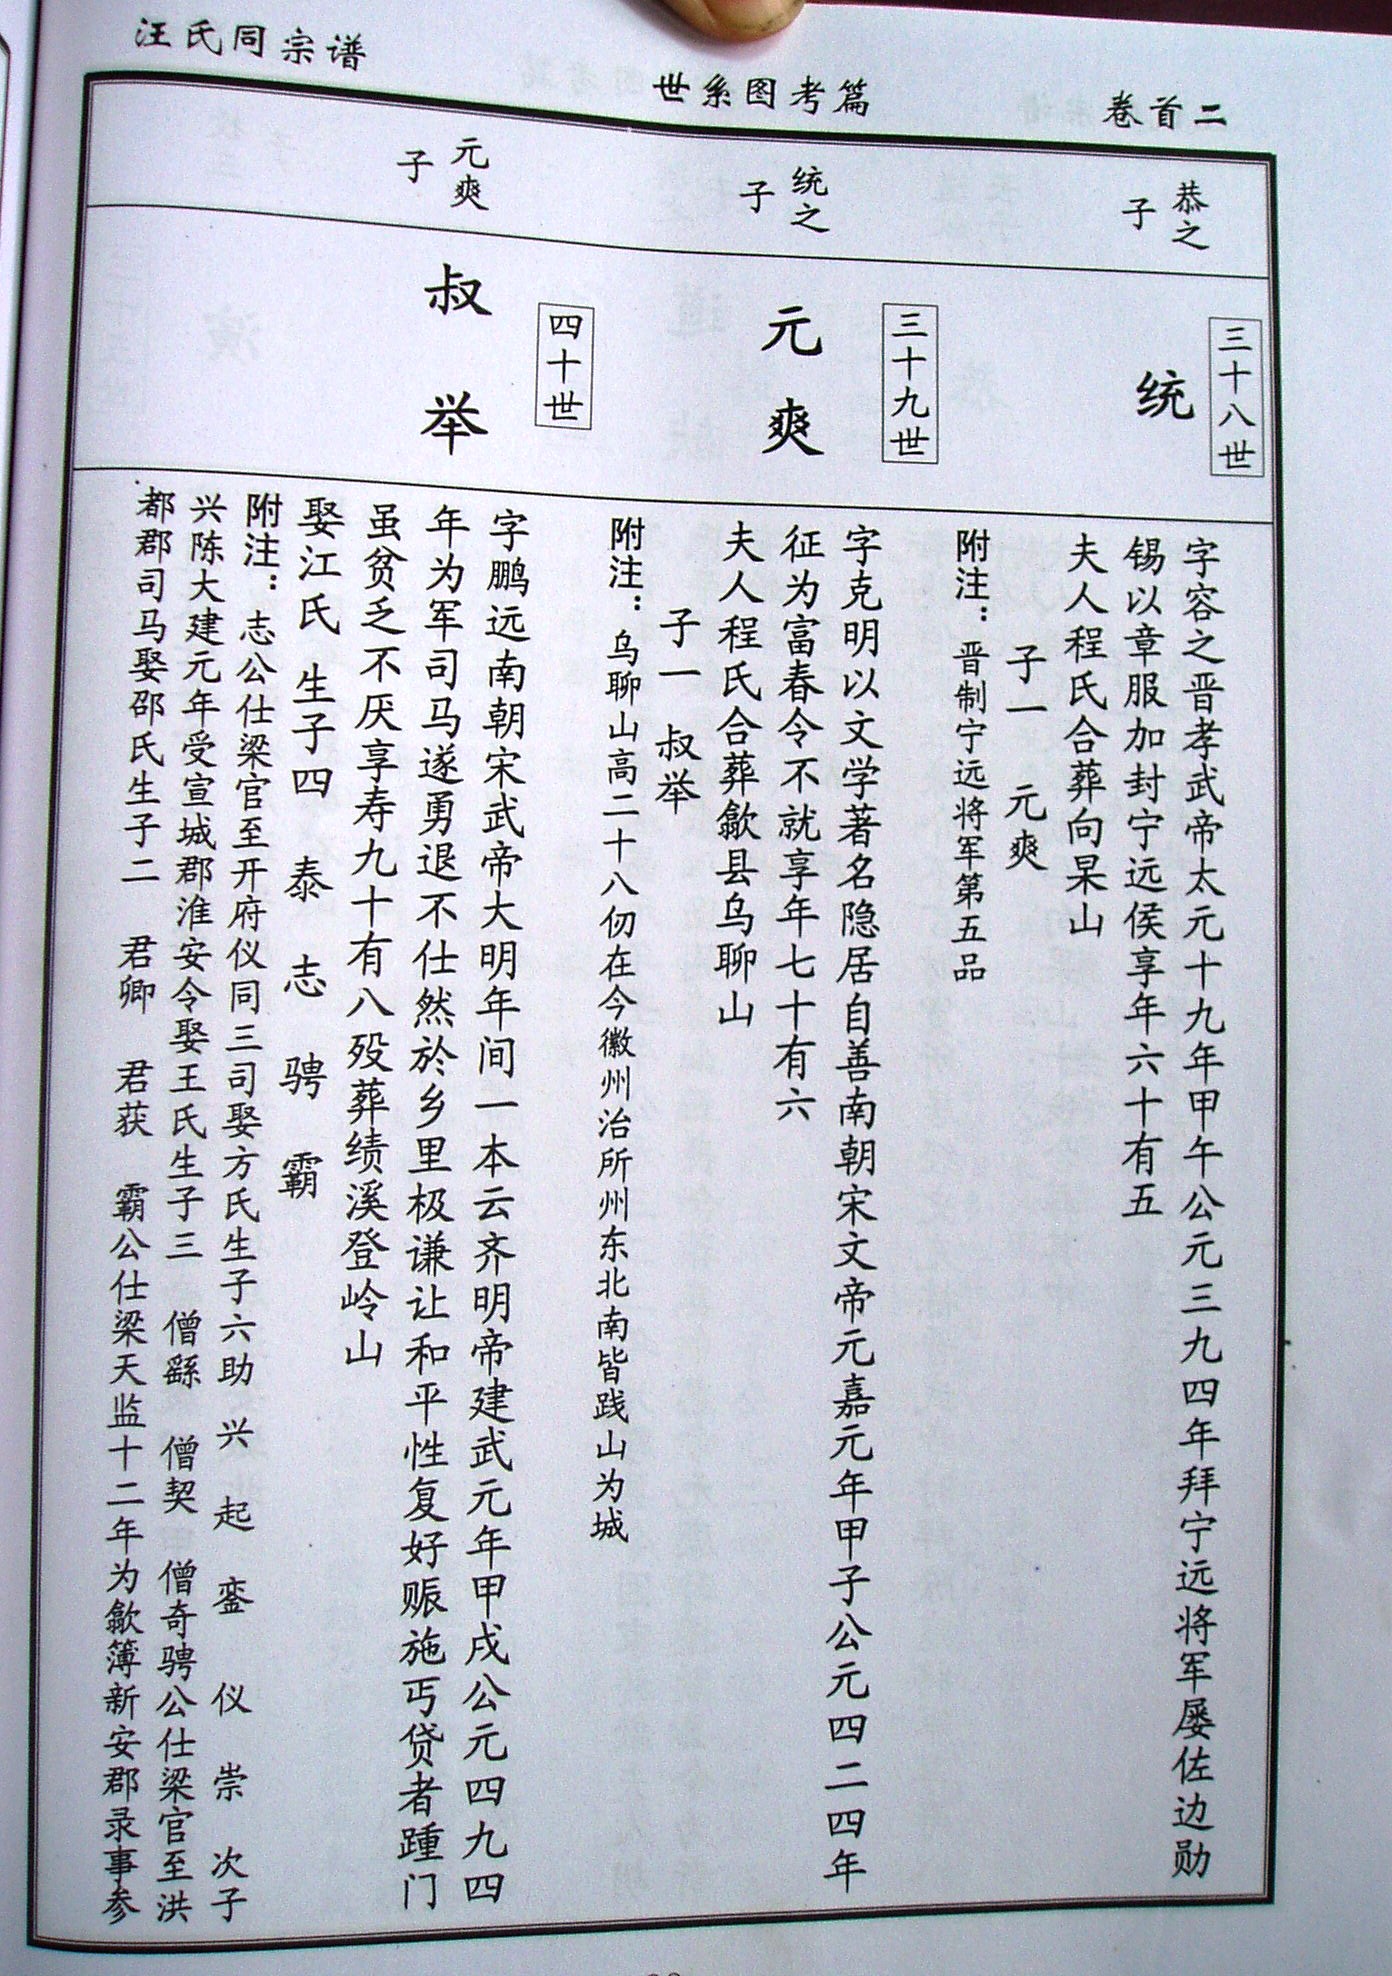 汪氏同宗谱
世系图考篇
卷首二
恭之
子
三十八世
统
字容之晋孝武帝太元十九年甲午公元三九四年拜宁远将军屡佐边勋
锡以章服加封宁远侯享年六十有五
夫人程氏合葬向杲山
子一 元爽
附注：晋制宁远将军第五品
统之
子
三十九世
元爽
字克明以文学著名隐居自善南朝宋文帝元嘉元年甲子公元四二四年
征为富春令不就享年七十有六
夫人程氏合葬歙县乌聊山
子一 叔举
附注：乌聊山高二十八仞在今徽州治所州东北南皆践山为城
元爽
子
四十世
叔举
字鹏远南朝宋武帝大明年间一本云齐明帝建武元年甲戌公元四九四
年为军司马遂勇退不仕然於乡里极谦让和平性复好赈施丐贷者踵门
虽贫乏不厌享寿九十有八殁葬绩溪登岭山
娶江氏 生子四 泰 志 骋 霸
附注：志公仕梁官至开府仪同三司娶方氏生子六助 兴 起 銮 仪 崇 次子
兴陈大建元年受宣城郡淮安令娶王氏生子三 僧繇 僧契 僧奇骋公仕梁官至洪
都郡司马娶邵氏生子二 君卿 君获 霸公仕梁天监十二年为歙簿新安郡录事参